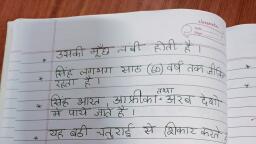 उसकी मूँछ लंबी होती है।
* सिंह लगभग साठ (60) वर्ष तक जीवित
रहता है।
* सिंह भारत, आफ्रीका तथा अरब देशों
में पाये जाते हैं।
* यह बड़ी चतुराई से शिकार करते